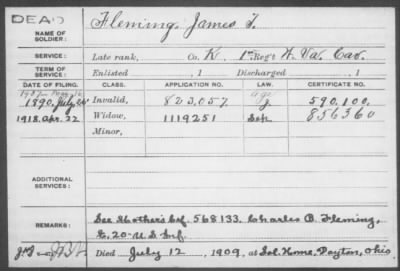 DEAD
NAME OF SOLDIER: Fleming, James T.
SERVICE: Late rank, Co. K, 1" Reg't W. Va. Cav.
TERM OF SERVICE: Enlisted , 1 Discharged , 1
DATE OF FILING. CLASS. APPLICATION NO. LAW. CERTIFICATE NO.
1890, July 26 Invalid, 823,057. J. 590,100.
1918, Apr. 22 Widow, 1119251 Sep 856360
Minor,
ADDITIONAL SERVICES:
REMARKS: See Mother's Crf. 568133. Charles B. Fleming,
E, 20 - U.S. Inf.
Died July 12, 1909, at Sol. Home, Dayton, Ohio.